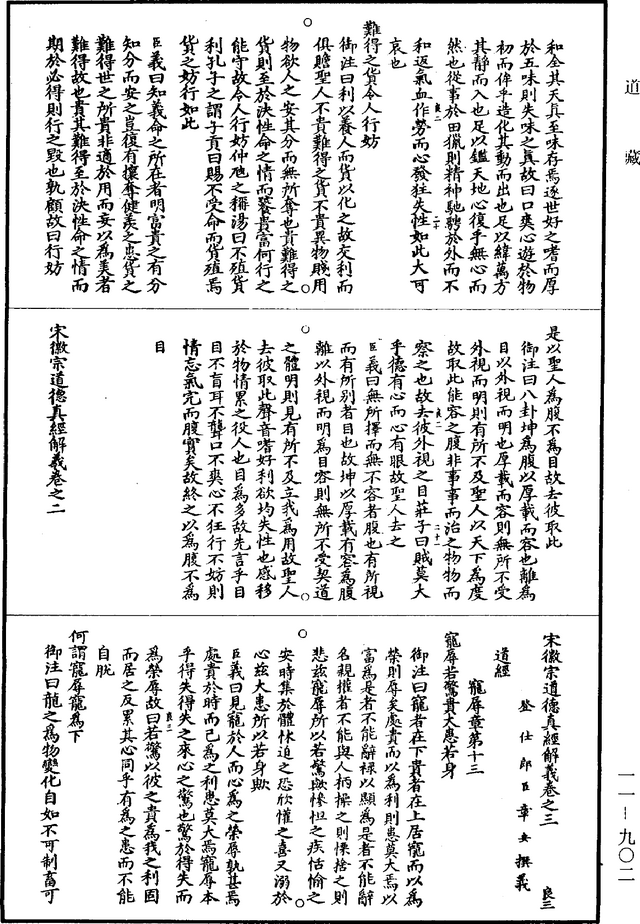 道藏
和全其天真至味存焉逐世好之嗜而厚
於五味則失味之真故曰口爽心遊於物
初而侔乎造化其動而出也足以緯萬方
其靜而入也足以鑑天地心復乎無心而
然也從事於田獵則精神馳騁於外而不
和返氣血作勞而心發狂失性如此大可
哀也
難得之貨令人行妨
御注曰利以養人而貨以化之故交利而
俱贍聖人不貴難得之貨不貴異物賤用
物欲人之安其分而無所奪也貴難得之
貨則至於決性命之情而饕貴富何行之
能守故令人行妨仲虺之稱湯曰不殖貨
利孔子之謂子貢曰賜不受命而貨殖焉
貨之妨行如此
臣義曰知義命之所在者明富貴之有分
知分而安之豈復有攘奪健羨之患貨之
難得世之所貴非適於用而妄以為美者
難得故也貴其難得至於決性命之情而
期於必得則行之毀也孰顧故曰行妨
是以聖人為腹不為目故去彼取此
御注曰八卦坤為腹以厚載而容也離為
目以外視而明也厚載而容則無所不受
外視而明則有所不及聖人以天下為度
故取此能容之腹非事事而治之物物而
察之也故去彼外視之目莊子曰賊莫大
乎德有心而心有眼故聖人去之
臣義曰無所擇而無不容者腹也有所視
而有所別者目也故坤以厚載有容為腹
離以外視而明為目容則無所不受契道
之體明則見有所不及立我為用故聖人
去彼取此聲音嗜好利欲均失性也感移
於物情累之役人也目為多故先言乎目
目不盲耳不聾口不爽心不狂行不妨則
情忘氣完而腹實矣故終之以為腹不為
目
宋徽宗道德真經解義卷之二
宋徽宗道德真經解義卷之三
良三
登仕郎臣章安撰義
道經
寵辱章第十三
寵辱若驚貴大患若身
御注曰寵者在下貴者在上居寵而以為
榮則辱矣處貴而以為利則患莫大焉以
富為是者不能辭祿以顯為是者不能辭
名親權者不能與人柄操之則慄捨之則
悲茲寵辱所以若驚歟慘怛之疾恬愉之
安時集於體怵迫之恐欣懽之喜又溺於
心茲大患所以若身歟
臣義曰見寵於人而心為之榮辱孰甚焉
處貴於時而己為之利患莫大焉寵辱本
乎得失得失之來心之驚也驚於得失而
為榮辱故曰若驚以彼之貴為我之利固
而居之反累其心同乎有為之患而不能
自脫
何謂寵辱寵為下
御注曰龍之為物變化自如不可制畜可
一一－九〇二